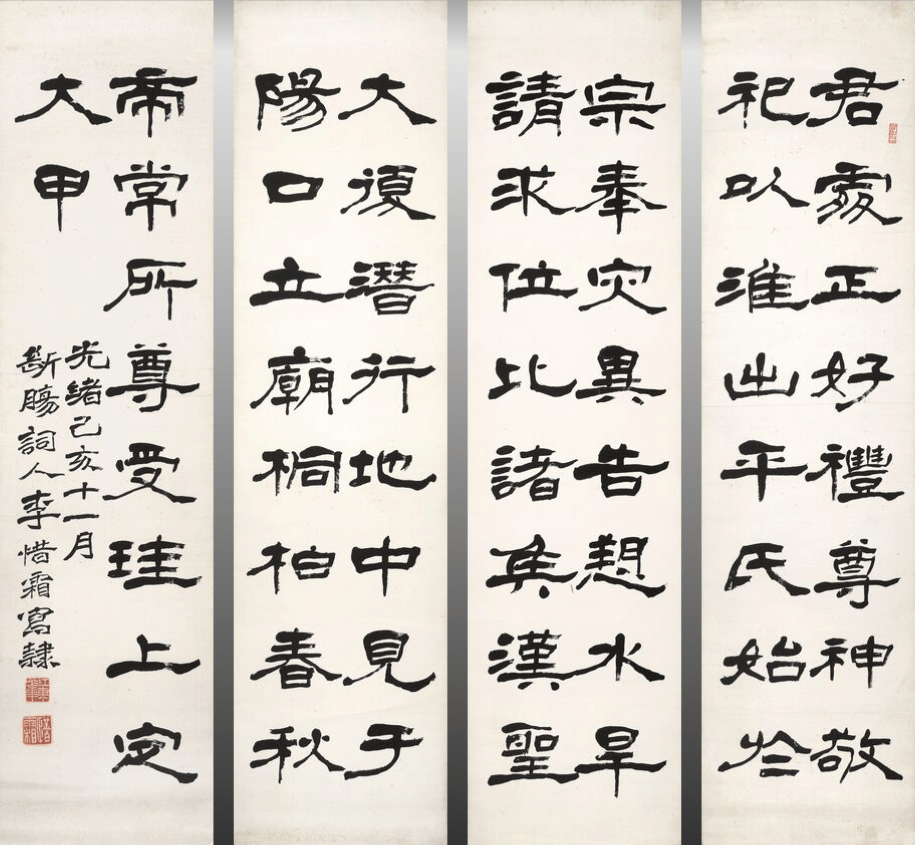 君處正好禮尊神敬
祀以淮出平氏始於
宗奉灾異告愬水旱
請求位比諸矦漢聖
大復潛行地中見于
陽口立廟桐柏春秋
帝常所尊受珪上定
大甲
光緒己亥十一月
斷腸詞人李惜霜寫隸